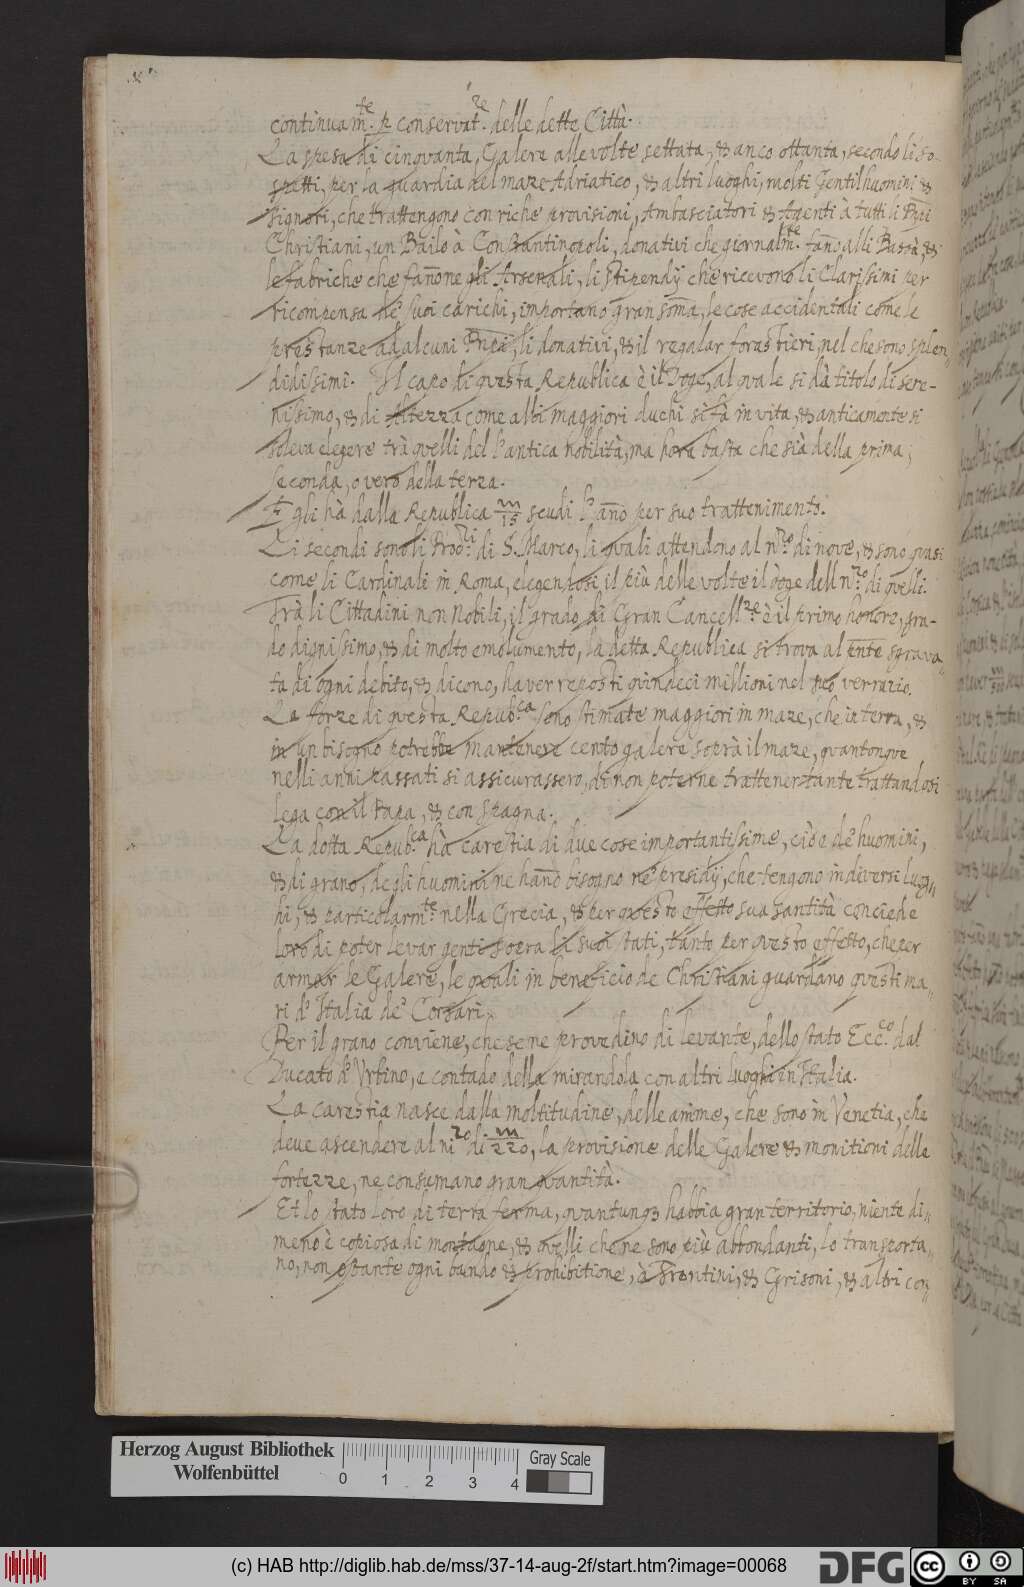 continuam.te p conservat.re delle dette Città.
La spesa di cinquanta, Galere alle volte settata, & anco ottanta, secondo li so-
spetti, per la guardia del mare Adriatico, & altri luoghi, molti Gentilhuomini &
signori, che trattengono con riche provisioni, Ambasciatori & Agenti à tutti li Pnpi
Christiani, un Bailo à Constantinopoli, donativi che giornalm.te fano alli Bassà, &
le fabriche che fanone gli Arsenali, li stipendij che ricevono li Clarissimi per
ricompensa de' suoi carichi, importano gran soma, le cose accidentali come le
prestanze ad alcuni Pnpi, li donativi, & il regalar forastieri, nel che sono splen,,
didissimi. Il capo di questa Republica è il Doge, al quale si dà titolo di sere-
nissimo, & di Altezza come altri maggiori duchi si fà in vita, & anticamente si
soleva elegere trà quelli del l'antica nobilità, ma hora basta che sià della prima,
seconda, o vero della terza.
Egli hà dalla Republica m/15 scudi l'ano per suo trattenimento.
Li secondi sono li Proc.ri di S. Marco, li quali attendono al n.ro di nove, & sono quasi
come li Cardinali in Roma, elegendosi il più delle volte il doge dell n.ro di quelli.
Trà li Cittadini non Nobili, il grado di Gran Cancell.re è il primo honore, gra-
do dignissimo, & di molto emolumento, la detta Republica si trova al pnte sgrava,,
ta di ogni debito, & dicono, haver reposti quindeci millioni nel suo verrario.
Le forze di questa Repub.ca sono stimate maggiori in mare, che in terra, &
in un bisogno potrebbe mantenere cento galere soprà il mare, quantonque
nelli anni passati si assicurassero, di non poterne trattener tante trattandosi
lega con il Papa, & con spagna.
La dotta Repub.ca hà carestia di due cose importantissime, ciò e de huomini,
& di grano, de gli huomini ne hano bisogno ne' presidij, che tengono in diversi luog,,
hi, & particolarm.te nella Grecia, & per questo effetto sua Santità conciede
loro di poter levar genti sopra li suoi stati, tanto per questo effetto, che per
armar le Galere, le quali in beneficio de Christiani guardano questi ma,,
ri d'Italia de' Corsari.
Per il grano conviene, che se ne provedino di levante, dello stato Ecc.co dal
Ducato d'Urbino, e contado della mirandola con altri luoghi in Italia.
La carestia nasce dalla moltitudine, delle anime, che sono in Venetia, che
deve ascendere al n.ro di m/220, la provisione delle Galere & monitioni delle
fortezze, ne consumano gran quantità.
Et lo stato loro di terra ferma, quantunq3 habbia gran territorio, niente di,,
meno è copiosa di montagne, & quelli che ne sono più abbondanti, lo transporta,,
no, non ostante ogni bando & prohibitione, à Trentini, & Grisoni, & altri con,,
Herzog August Bibliothek
Wolfenbüttel
0 1 2 3 4
Gray Scale
(c) HAB http://diglib.hab.de/mss/37-14-aug-2f/start.htm?image=00068
DFG
cc BY SA